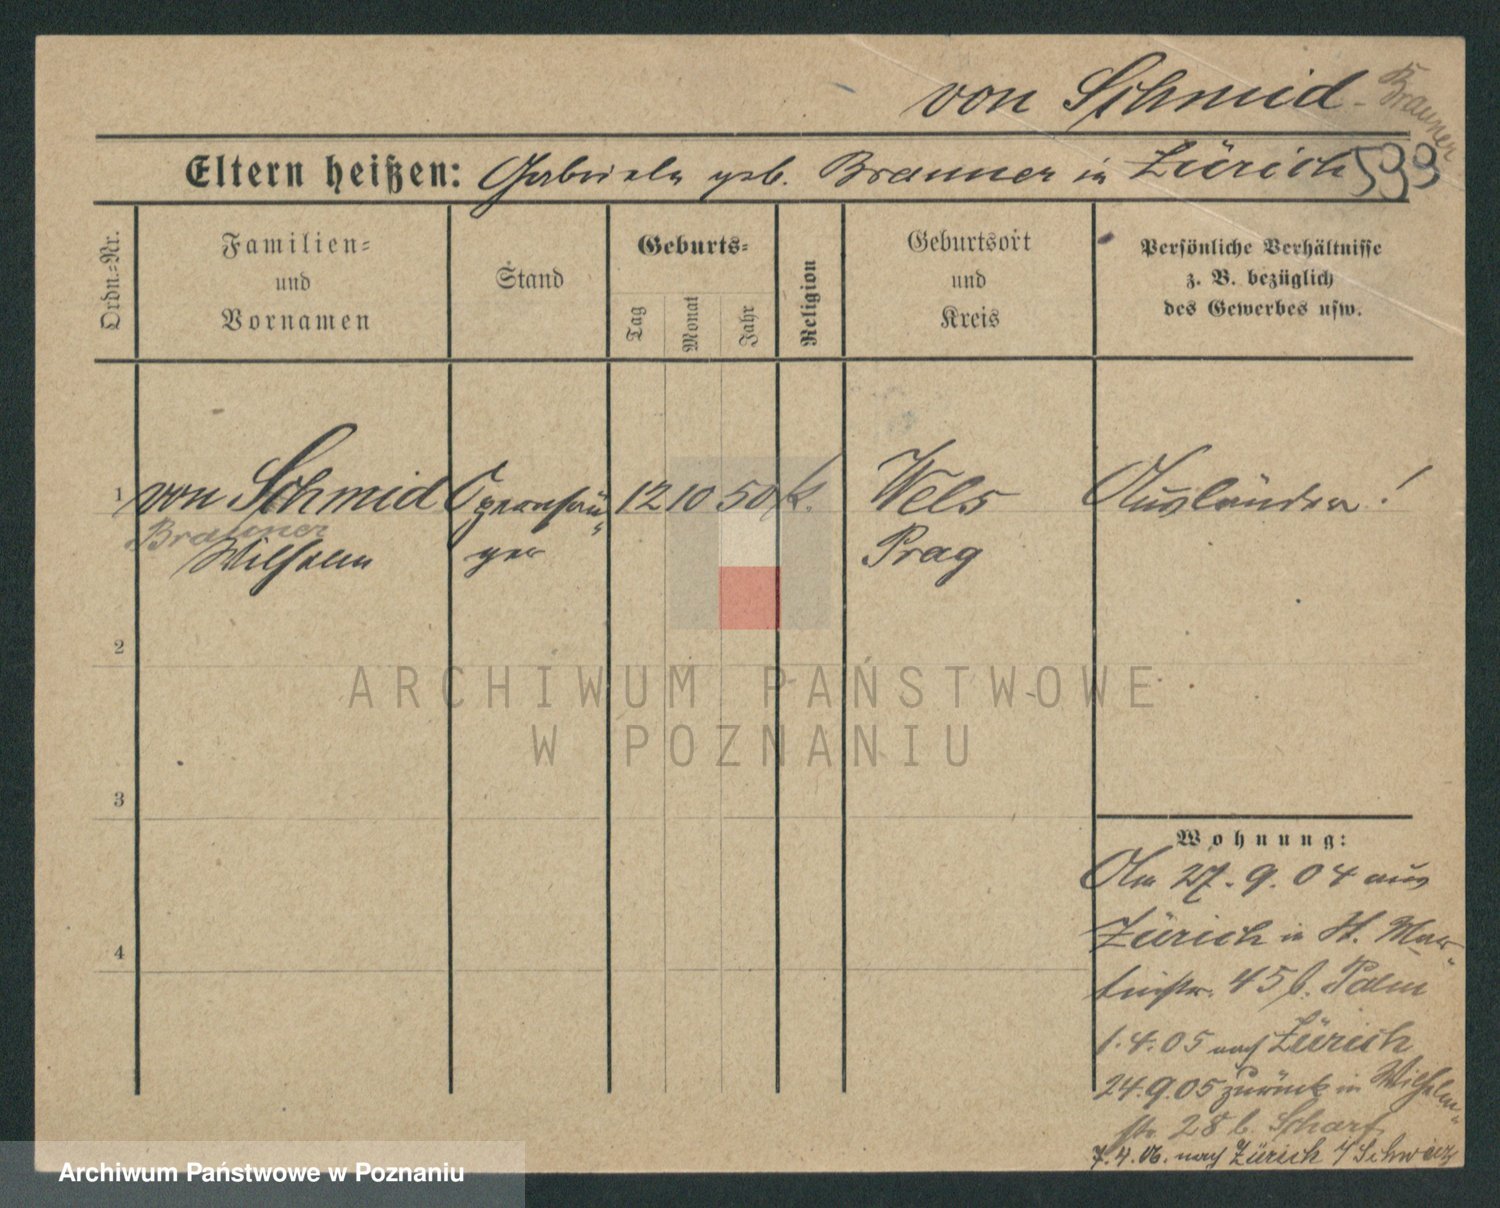 von Schmid - Brauner
Eltern heißen: Gabriele geb. Brauner in Zürich 599
Ordn.-Nr.
Familien-
und
Vornamen
Stand
Geburts-
Tag
Monat
Jahr
Religion
Geburtsort
und
Kreis
Persönliche Verhältnisse
z. B. bezüglich
des Gewerbes usw.
1 von Schmid Opernsän- 12 10 50 k. Wels Ausländer!
Brauner
Wilhelm ger Prag
2
ARCHIWUM PAŃSTWOWE
W POZNANIU
3
Wohnung:
Am 27.9.04 aus
Zürich in St. Mar-
tinstr. 45 b. Palm
1.4.05 nach Zürich
24.9.05 zurück in Wilhelm-
str. 28 b. Scharf
7.4.06. nach Zürich / Schweiz
4
Archiwum Państwowe w Poznaniu